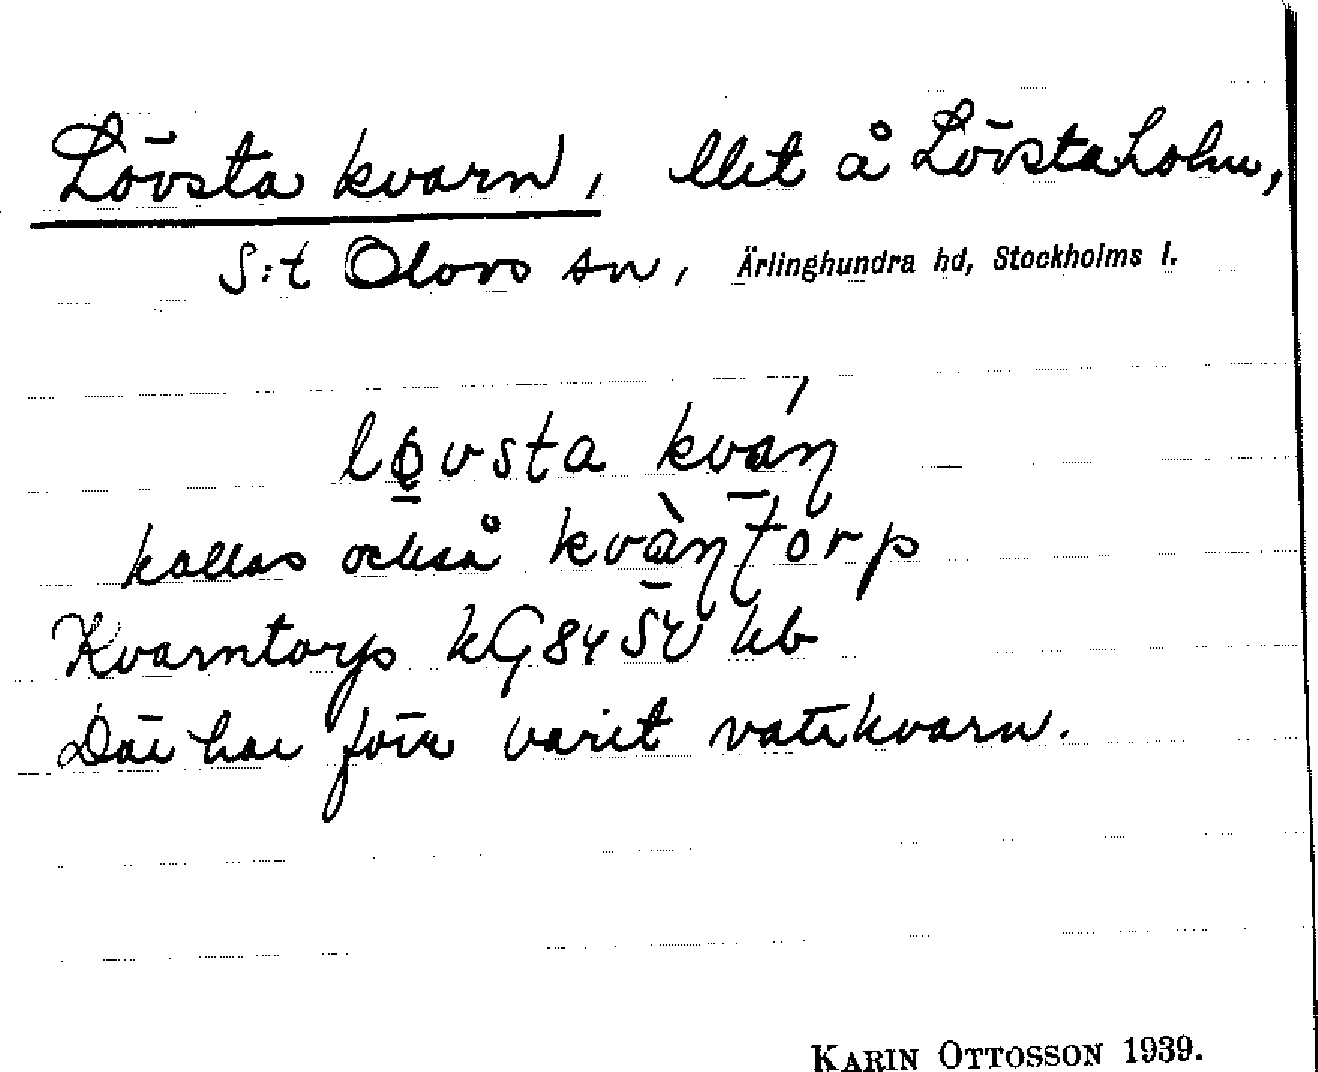 Lövsta kvarn, llht å Lövstaholm,
S:t Olovs sn, Ärlinghundra hd, Stockholms l.
lövsta kván
kallas också kvàntorp
Kvarntorp kG84 SV hb
Där har förr varit vattkvarn.
KARIN OTTOSSON 1939.